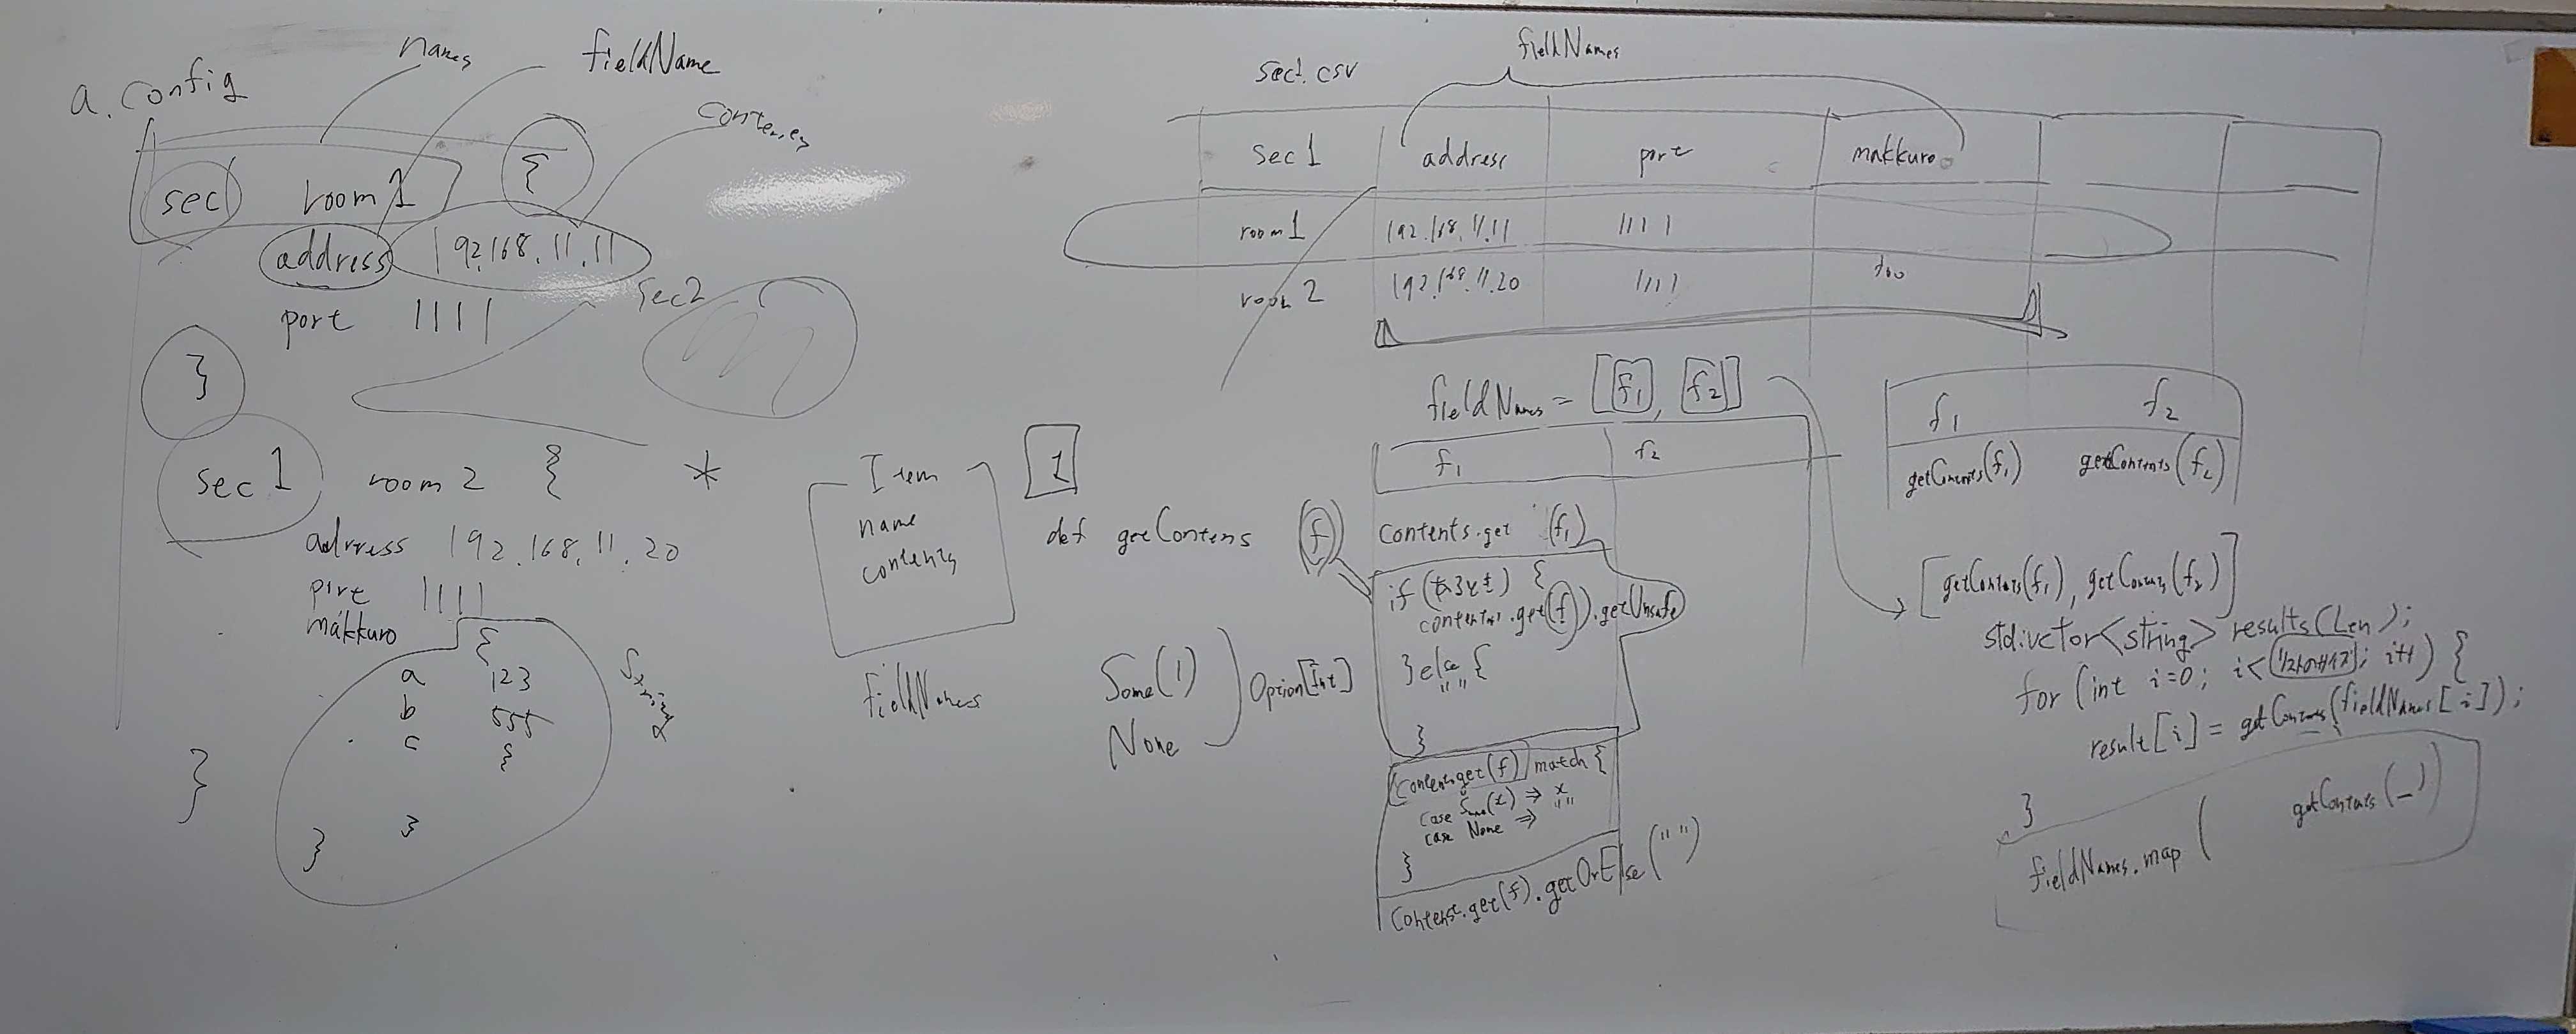 a. config
names
fieldName
contents
sec1 room1 {
address 192.168.11.11
port 1111
}
sec2
sec1 room2 { *
adrress 192.168.11.20
port 1111
makkuro {
a 123
b 555
c {
}
}
}
String
Item
name
contents
fieldNames
1
def getContens f
Some(1)
None
Option[Int]
sec1.csv
fieldNames
sec1 address port makkuro
room1 192.168.11.11 1111
room2 192.168.11.20 1111
fieldNames = [f1, f2]
f1 f2
contents.get (f1)
if (あるとき) {
contents.get(f).getUnsafe
} else {
""
}
Contents.get(f) match {
case Some(x) => x
case None => ""
}
Contents.get(f).getOrElse("")
f1 f2
getContents(f1) getContents(f2)
[getContents(f1), getContents(f2)]
std::vector<string> results(Len);
for (int i=0; i< ; i++) {
result[i] = getContents(fieldNames[i]);
}
fieldNames.map ( getContents(_))